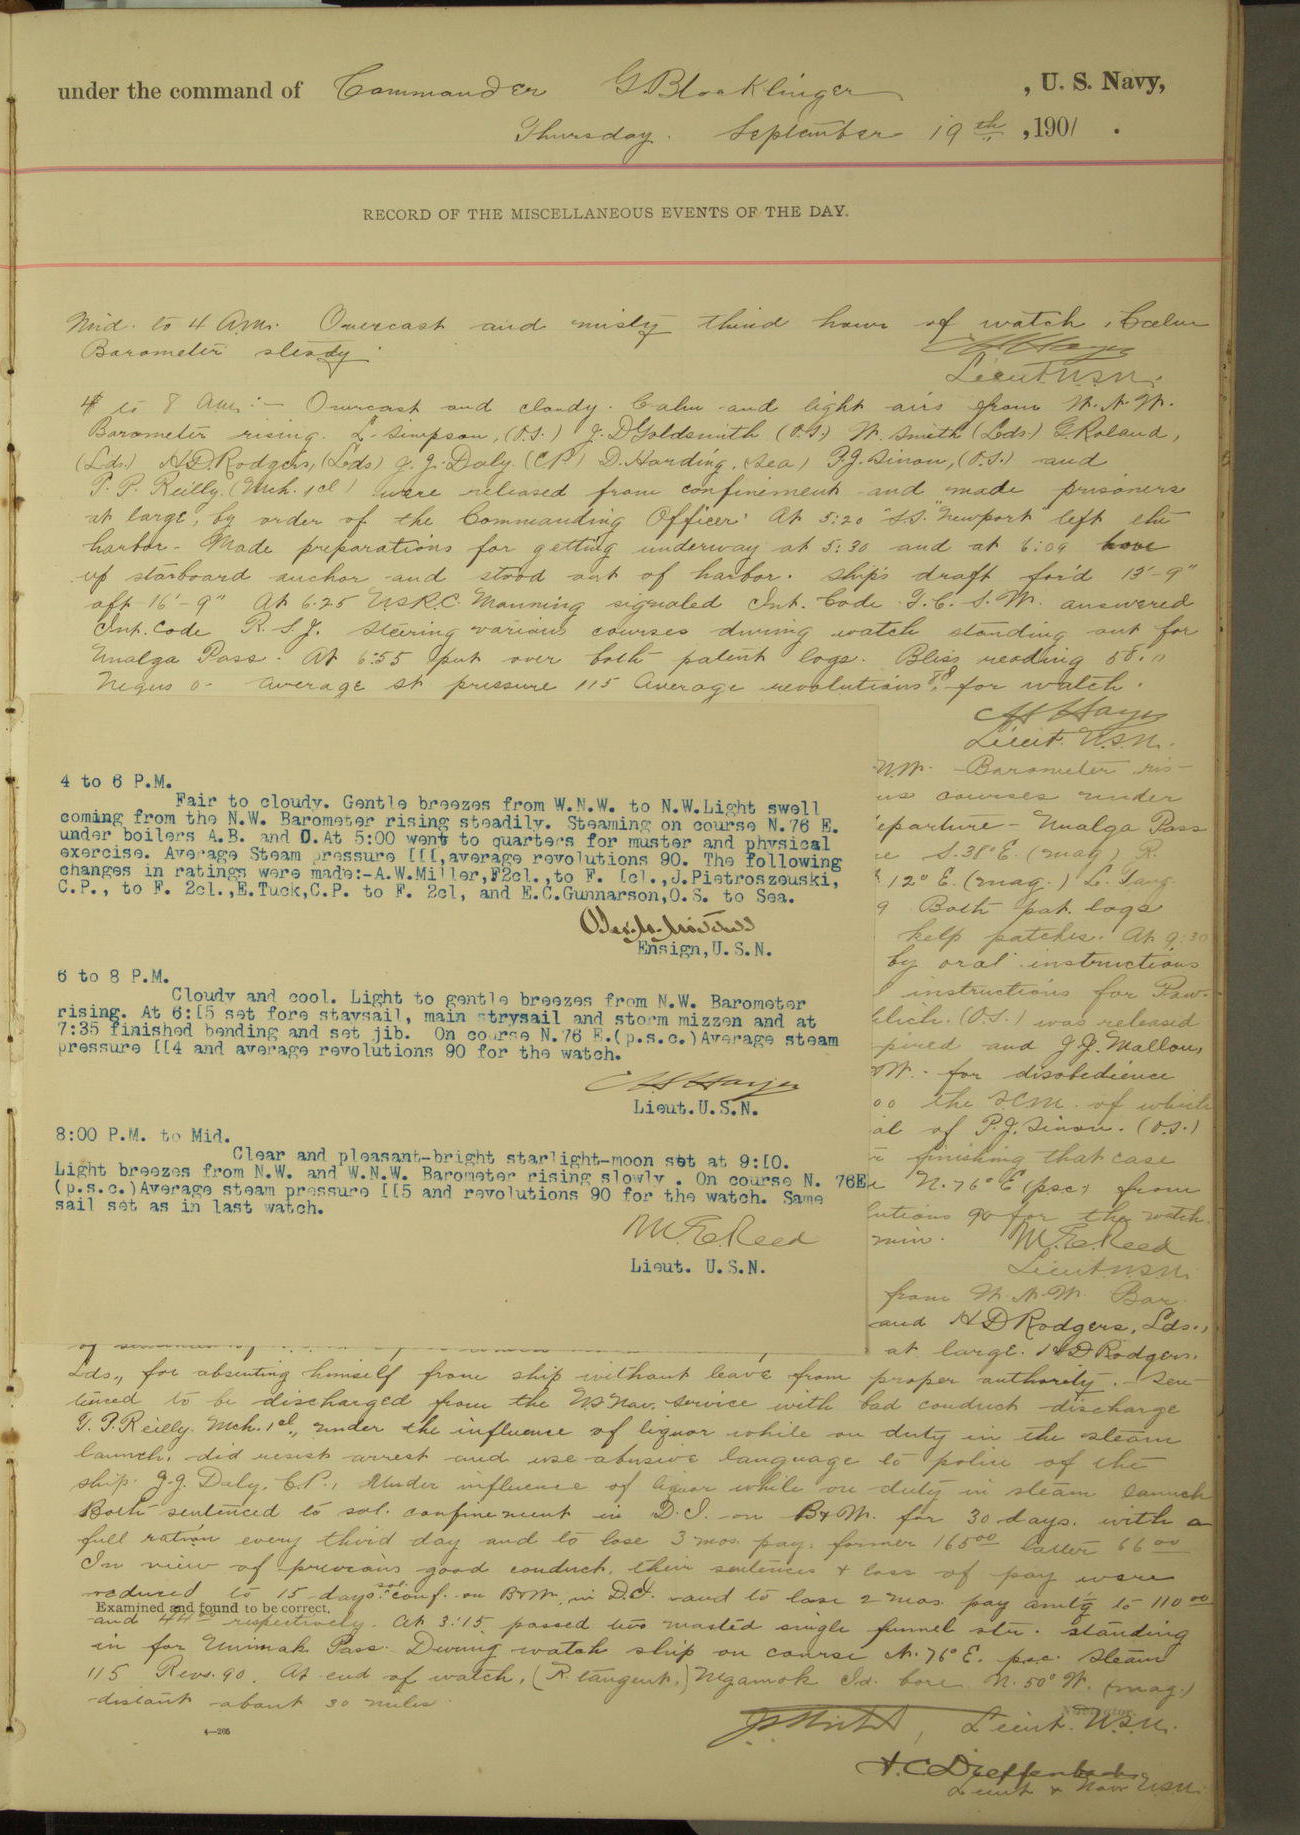 under the command of Commander G Blocklinger , U. S. Navy,
Thursday. September 19th , 1901 .
RECORD OF THE MISCELLANEOUS EVENTS OF THE DAY.
Mid. to 4 A.M. Overcast and misty third hour of watch. Calm
Barometer steady.
Lieut U.S.N.
4 to 8 A.M:— Overcast and cloudy. Calm and light airs from W.N.W.
Barometer rising. L. Simpson, (O.S.) J. D Goldsmith (O.S.) W. Smith (Lds.) G. Roland,
(Lds.) H.D. Rodgers, (Lds) J. J. Daly (CP) D. Harding, (Sea) P.J. Sinon, (O.S.) and
T. P. Reilly (Mch. 1cl) were released from confinement and made prisoners
at large, by order of the Commanding Officer. At 5:20 "S.S. "Newport" left the
harbor - Made preparations for getting underway at 5:30 and at 6:09 hove
up starboard anchor and stood out of harbor. Ship's draft for'd 13'-9"
aft 16'-9" At 6.25 U.S.R.C. Manning signaled Int. Code answered
Int. Code R. S. J. Steering various courses during watch standing out for
Unalga Pass. At 6:55 put over both patent logs. Bliss reading 58.
Negus 0 - average st pressure 115 Average revolutions 88. for watch.
Lieut. U.S.N.
N.W. - Barometer ris-
us courses under
eparture - Unalga Pass
S. 38° E. (mag) R.
12° E. (mag.) L. Tang.
9 Both pat. logs
kelp patches. At 9:30
by oral instructions
instructions for Paw-
(O.S.) was released
pired and J.J. Mallon,
for disobedience
00 the SCM. of which
al of P.J. Sinon. (O.S.)
finishing that case
4 to 6 P.M.
Fair to cloudy. Gentle breezes from W.N.W. to N.W.Light swell
coming from the N.W. Barometer rising steadily. Steaming on course N.76 E.
under boilers A.B. and D.At 5:00 went to quarters for muster and physical
exercise. Average Steam pressure [[[,average revolutions 90. The following
changes in ratings were made:-A.W.Miller,F2cl.,to F. [cl.,J.Pietroszeuski,
C.P., to F. 2cl.,E.Tuck,C.P. to F. 2cl, and E.C.Gunnarson,O.S. to Sea.
Ensign,U.S.N.
6 to 8 P.M.
Cloudy and cool. Light to gentle breezes from N.W. Barometer
rising. At 6:[5 set fore staysail, main strysail and storm mizzen and at
7:35 finished bending and set jib. On course N.76 E.(p.s.c.)Average steam
pressure [[4 and average revolutions 90 for the watch.
Lieut.U.S.N.
8:00 P.M. to Mid.
Clear and pleasant-bright starlight-moon set at 9:[0.
Light breezes from N.W. and W.N.W. Barometer rising slowly . On course N. 76E
(p.s.c.)Average steam pressure [[5 and revolutions 90 for the watch. Same
sail set as in last watch.
M. E. Reed
Lieut. U.S.N.
N. 76° E (psc) from
lutions 90 for the watch.
M. E. Reed
Lieut. U.S.N.
from W. N.W. Bar.
and H D Rodgers, Lds.,
at large. H D Rodgers.
Lds., for absenting himself from ship without leave from proper authority. Sen-
tenced to be discharged from the U.S Nav. Service with bad conduct discharge
T. P. Reilly. Mch. 1cl., under the influence of liquor while on duty in the steam
launch, did resist arrest and use abusive language to police of the
ship. J.J. Daly. C.P., Under influence of liquor while on duty in steam launch
Both sentenced to sol. confinement in D. I. on B & W. for 30 days. with a
full ration every third day and to lose 3 mos. pay, former 165 00 latter 66 00
In view of previous good conduct, their sentences & loss of pay were
reduced to 15 days sol. conf. on B & W. in D.I. and to lose 2 mos. pay amt'g to 110 00
Examined and found to be correct,
and 44 00 respectively. At 3:15 passed two masted single funnel str. standing
in for Unimak Pass. During watch ship on course N. 76° E. psc. Steam
115 Revs. 90. At end of watch, (R. tangent,) Ugamok Id. bore N. 50° W. (mag.)
distant about 30 miles.
4—265
Lieut. U.S.N.
Navigator.
H. C. Dieffenbach
Lieut & Nav U.S.N.